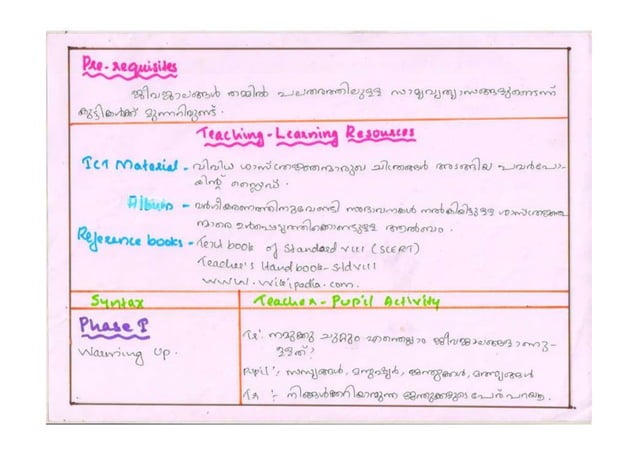 Pre-requisites
ജീവജാലങ്ങൾ തമ്മിൽ പലതരത്തിലുള്ള സാമ്യവ്യത്യാസങ്ങളുണ്ടെന്ന്
കുട്ടികൾക്ക് മുന്നറിവുണ്ട്.
Teaching-Learning Resources
ICT Material - വിവിധ ശാസ്ത്രജ്ഞന്മാരുടെ ചിത്രങ്ങൾ അടങ്ങിയ പവർപോ-
യിന്റ് സ്ലൈഡ്.
Album - വർഗീകരണത്തിനുവേണ്ടി സംഭാവനകൾ നൽകിയിട്ടുള്ള ശാസ്ത്രജ്ഞ
ന്മാരെ ഉൾപ്പെടുത്തിക്കൊണ്ടുള്ള ആൽബം.
Reference books - Text book of Standard VIII (SCERT)
Teacher's Hand book - Std VIII
WWW. Wikipedia. com.
Syntax
Teacher-Pupil Activity
Phase I
Warming Up.
Tr: നമുക്കു ചുറ്റും എന്തെല്ലാം ജീവജാലങ്ങളാണു-
ള്ളത്?
Pupil: സസ്യങ്ങൾ, മനുഷ്യർ, ജന്തുക്കൾ, മത്സ്യങ്ങൾ
Tr :- നിങ്ങൾക്കറിയാവുന്ന ജന്തുക്കളുടെ പേര് പറയൂ.